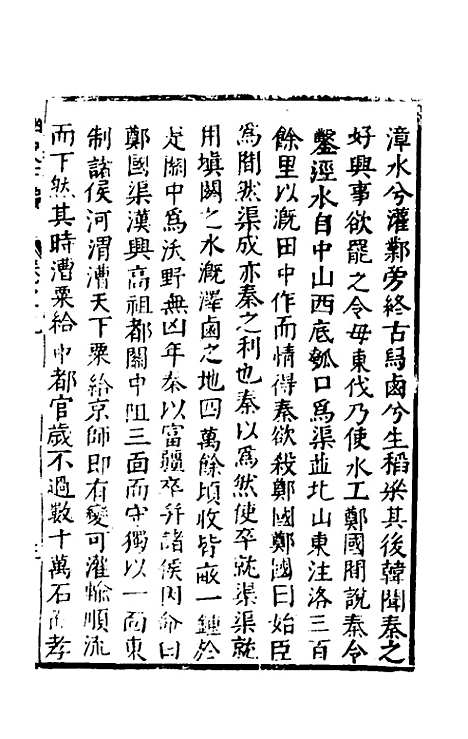 漳水兮灌鄴旁終古舄鹵兮生稻粱其後韓聞秦之
好興事欲罷之令毋東伐乃使水工鄭國間說秦令
鑿涇水自中山西底瓠口爲渠並北山東注洛三百
餘里以溉田中作而情得秦欲殺鄭國鄭國曰始臣
爲間然渠成亦秦之利也秦以爲然使卒就渠渠就
用填閼之水溉澤鹵之地四萬餘頃收皆畝一鍾於
是關中爲沃野無凶年秦以富疆卒并諸侯因命曰
鄭國渠漢興高祖都關中阻三面而守獨以一面東
制諸侯河渭漕天下粟給京師即有變可灌輸順流
而下然其時漕粟給中都官歲不過數十萬石而孝